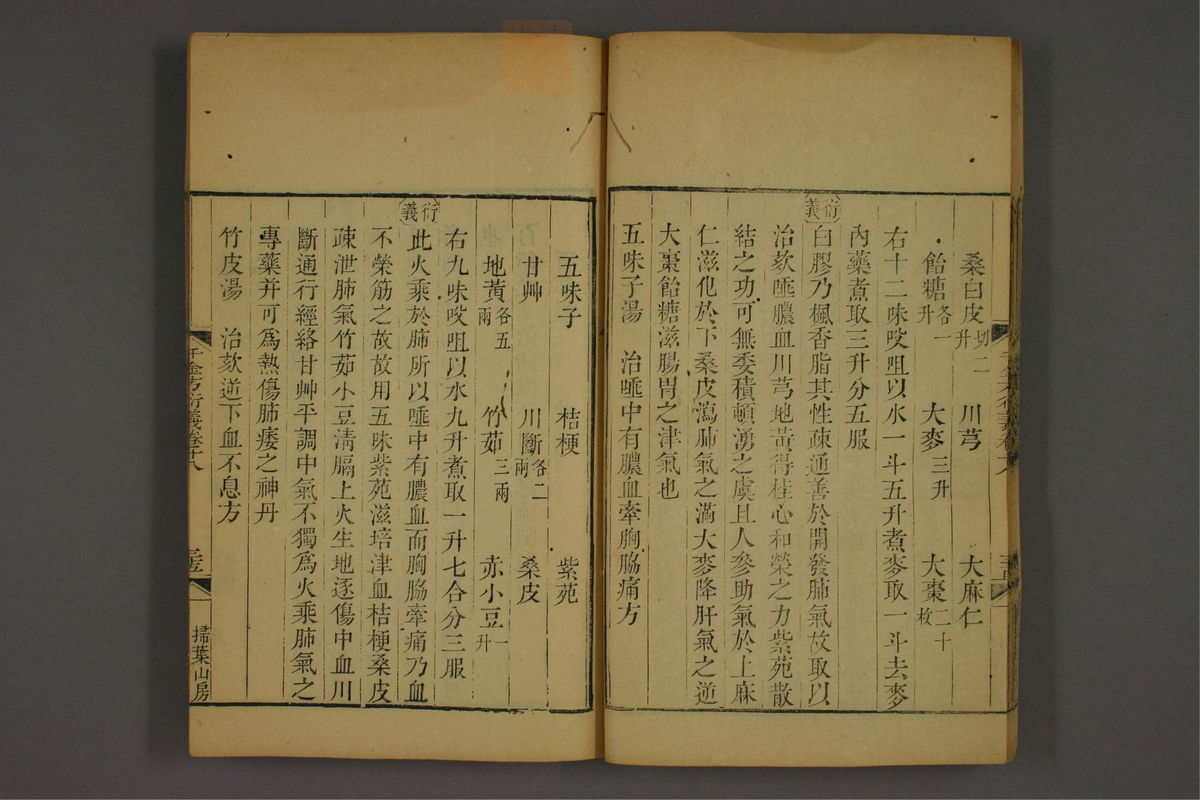 桑白皮切二升　川芎　大麻仁
飴糖各一升　大麥三升　大棗二十枚
右十二味㕮咀以水一斗五升煮麥取一斗去麥
內藥煮取三升分五服
衍義
白膠乃楓香脂其性疎通善於開發肺氣故取以
治欬唾膿血川芎地黃得桂心和榮之力紫苑散
結之功可無委積頓湧之虞且人參助氣於上麻
仁滋化於下桑皮瀉肺氣之滿大麥降肝氣之逆
大棗飴糖滋腸胃之津氣也
五味子湯　治唾中有膿血牽胸脇痛方
五味子　桔梗　紫苑
甘艸　川斷各二兩　桑皮
地黃各五兩　竹茹三兩　赤小豆一升
右九味㕮咀以水九升煮取一升七合分三服
衍義
此火乘於肺所以唾中有膿血而胸脇牽痛乃血
不榮筋之故故用五味紫苑滋培津血桔梗桑皮
疎泄肺氣竹茹小豆淸膈上火生地逐傷中血川
斷通行經絡甘艸平調中氣不獨爲火乘肺氣之
專藥幷可爲熱傷肺痿之神丹
竹皮湯　治欬逆下血不息方
千金方衍義卷十八
掃葉山房